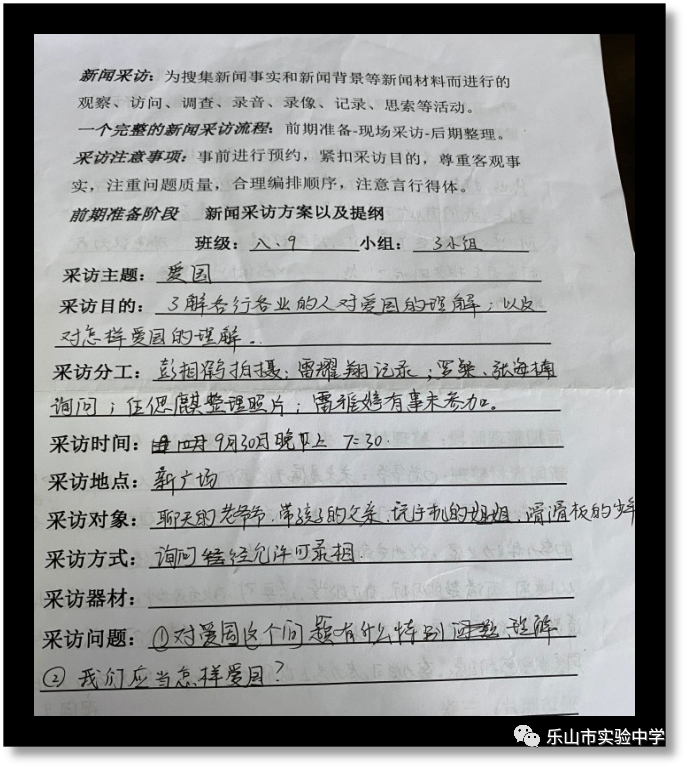 新闻采访：为搜集新闻事实和新闻背景等新闻材料而进行的
观察、访问、调查、录音、录像、记录、思索等活动。
一个完整的新闻采访流程：前期准备-现场采访-后期整理。
采访注意事项：事前进行预约，紧扣采访目的，尊重客观事
实，注重问题质量，合理编排顺序，注意言行得体。
前期准备阶段 新闻采访方案以及提纲
班级：八、9 小组：3小组
采访主题：爱国
采访目的：了解各行各业的人对爱国的理解；以及
对怎样爱国的理解。
采访分工：彭相 拍摄；雷耀翔记录； 、张海 
询问；任偲麒整理照片；雷雅婷有事未参加。
采访时间：9月30日晚上 7:30.
采访地点：新广场
采访对象：聊天的老爷爷、带孩子的父亲、玩手机的姐姐、滑滑板的少年
采访方式：询问 经允许可录相.
采访器材：
采访问题：①对爱国这个问题有什么特别 理解
②我们应当怎样爱国？
乐山市实验中学